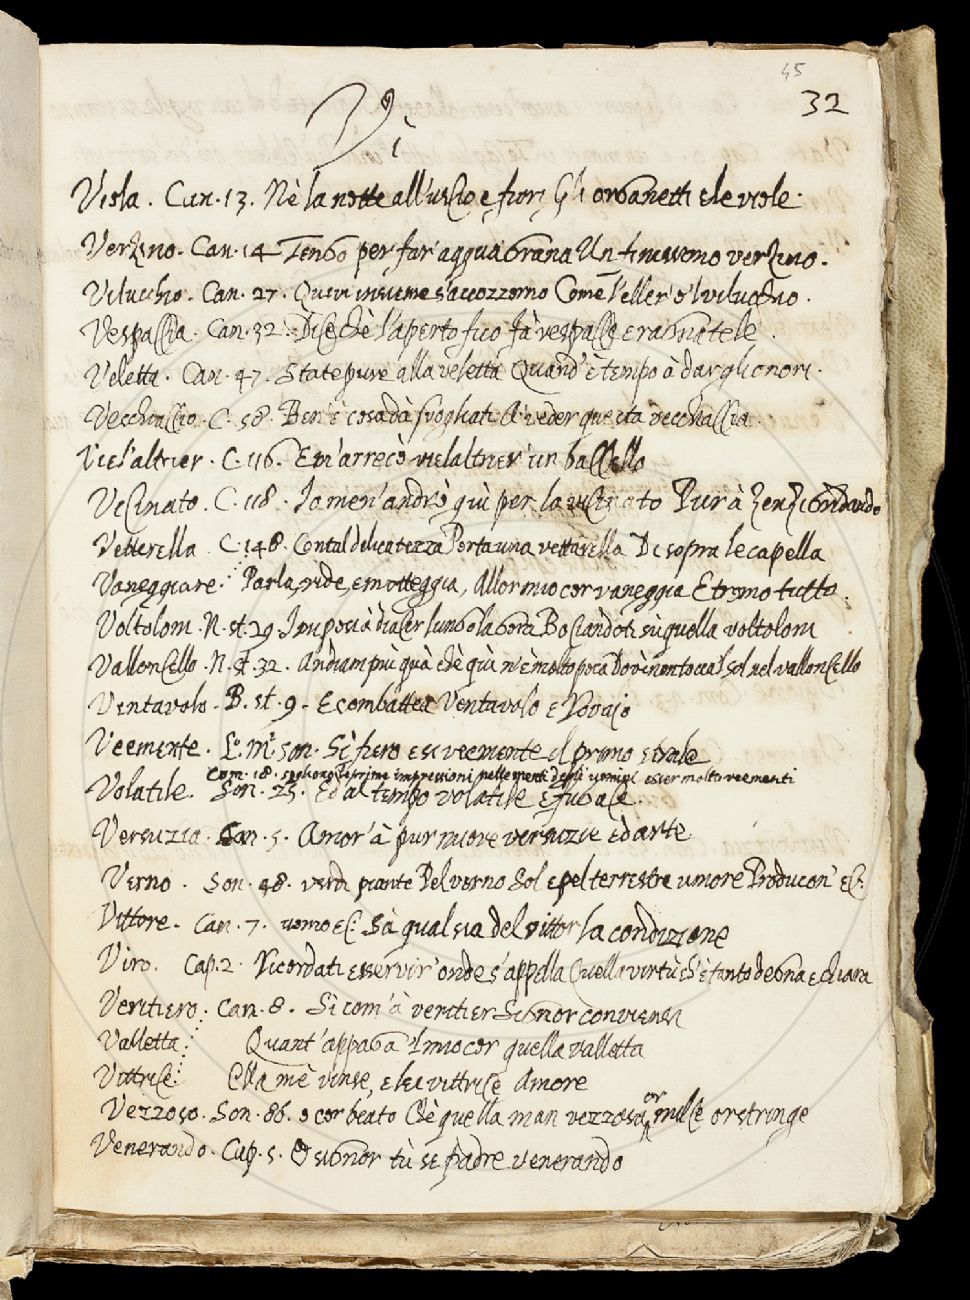 45
32
V
i
Viola. Can. 13. Nè la notte all'uscio e fiori Gli organetti e le viole.
Verzino. Can. 14 Tengo per far' acqua grana Un finissimo verzino.
Vilucchio. Can. 27. Quivi insieme s'accozzorno Come l'eller' e 'l vilucchio.
Vespaccia. Can. 32. Dice chè l'aperto fico Fà vespacce e ragnatele.
Veletta. Can. 47. State pure alla veletta Quand' è tempo à dargli onori.
Vecchiaccio. C. 58. Ben' è cosa dà svogliati A' veder questa vecchiaccia.
Viel'altrier. C. 116. E m'arrecò vielaltrier' un baccello
Vicinato. C. 118. Io men' andrò quì per la vicinato Pur à gridando
Vetterella. C. 148. Con tal delicatezza Porta una vettarella Di sopra le capella
Vaneggiare. Parla, ride, e motteggia, Allor mio cor vaneggia E tremo tutto.
Voltolom. N. st. 29 lungo la gora Bociandoti sù quella voltolom
Valloncello. N. st. 32. Andiam più quà chè quì n'è molto poca Dov'è non tocca 'l sol nel valloncello
Ventavolo. B. st. 9. E combatter Ventavolo e Rovaio
Veemente. son. Sì fiero e sì veemente il primo strale
Com. 18. sogliono le prime impressioni nelle menti degli uomini esser molto veementi
Volatile. Son. 25. Ed al tempo volatile e fugace.
Versuzia. Can. 5. Amor' à pur nuove versuzie ed arte
Verno. Son. 48. verdi piante Del verno Sol e pel terrestre umore Producon' ec.
Vittore. Can. 7. uomo ec. Sà qual sia del vittor la condizione
Viro. Cap. 2. Ricordati esser vir' onde s'appella Quella virtù ch'è tanto degna e chiara
Veritiero. Can. 8. Sì com' à veritier Signor conviensi
Valletta. Quant' appaga 'l mio cor quella valletta
Vittrice. Ella mè vinse, e lei vittrice Amore
Vezzoso. Son. 86. o cor beato Chè quella man vezzosa or mulce or stringe
Venerando. Cap. 5. O signor tù se padre venerando